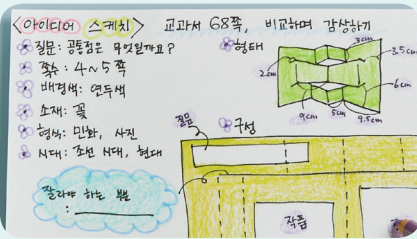 <아이디어 스케치> 교과서 68쪽, 비교하며 감상하기
질문: 공통점은 무엇일까요?
쪽수: 4~5쪽
배경색: 연두색
소재: 꽃
형식: 민화, 사진
시대: 조선 시대, 현대
잘라야 하는 부분
:
형태
3cm
3.5cm
2cm
6cm
9cm
5cm
9.5cm
질문
구성
작품